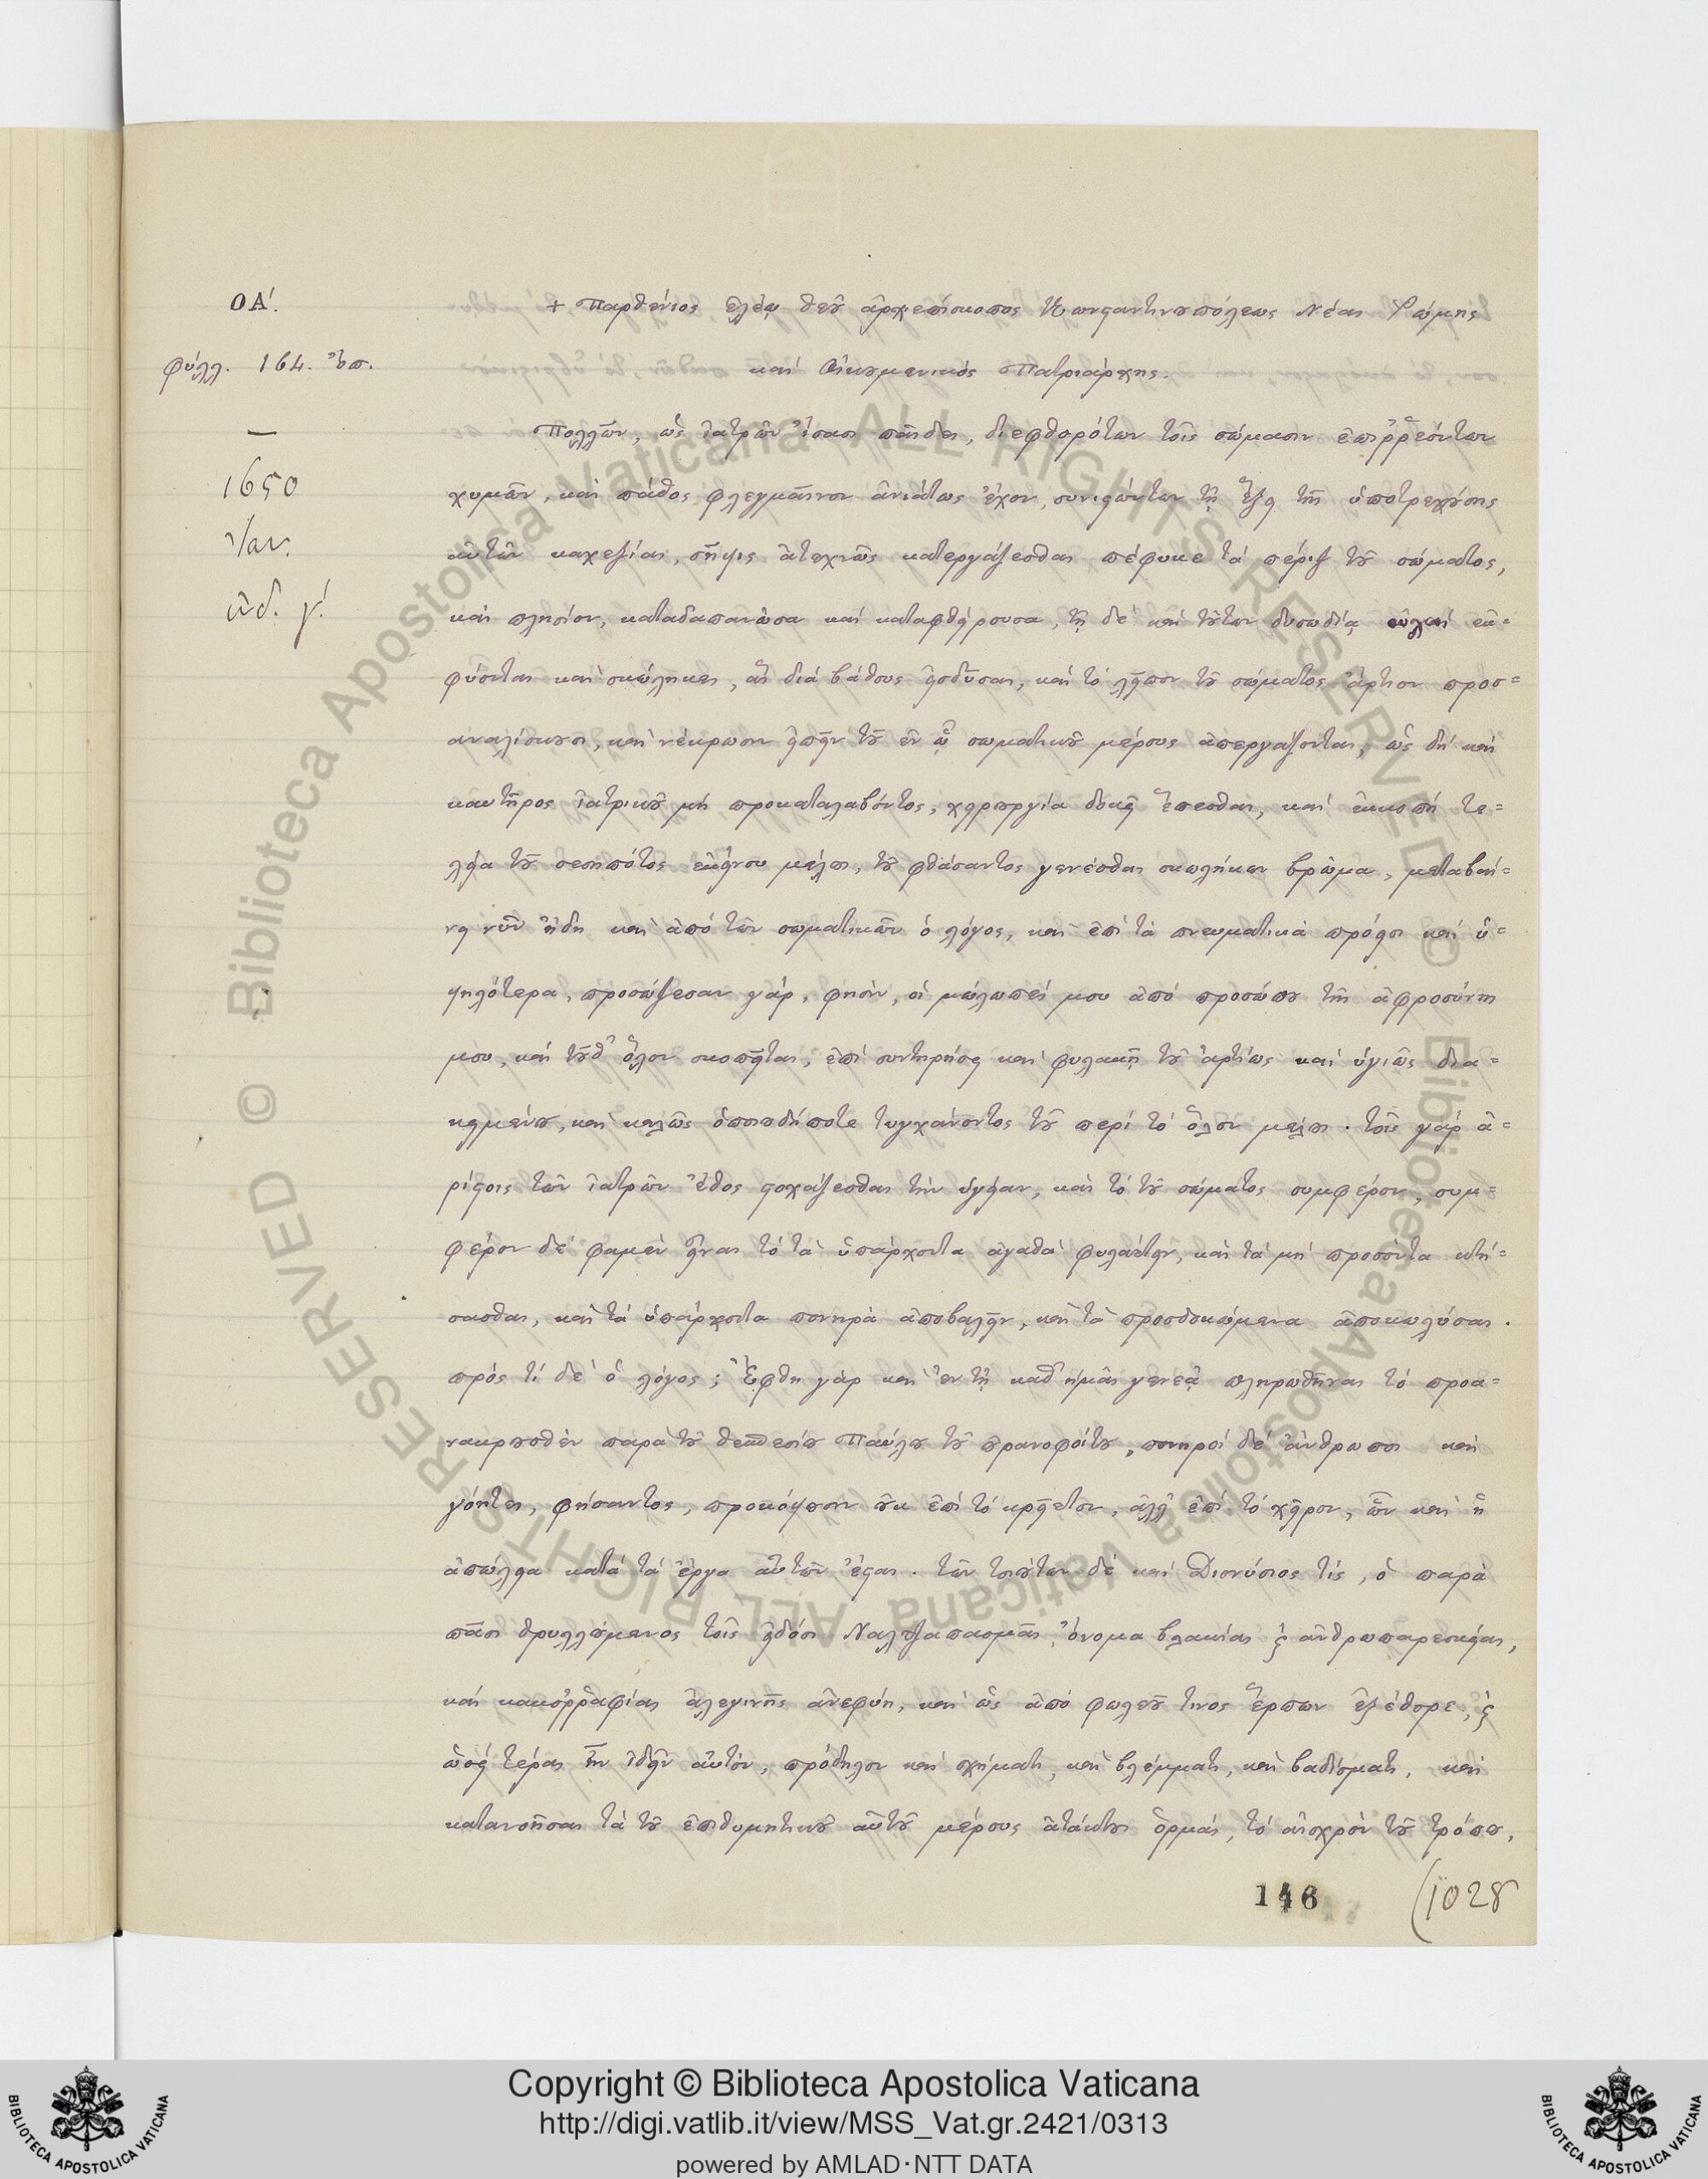 ΟΑ΄.
φύλλ. 164. ὄπ.
1650
Ἰαν.
ἰνδ. γ΄.
+ Παρθένιος ἐλέῳ θεοῦ ἀρχιεπίσκοπος Κωνσταντινουπόλεως Νέας Ῥώμης
καὶ Οἰκουμενικὸς Πατριάρχης.
Πολλῶν, ὡς ἰατρῶν ἴσασι παῖδες, διεφθορότων τοῖς σώμασιν ἐπιῤῥεόντων
χυμῶν, καὶ πάθος φλεγμαῖνον ἀνιάτως ἔχον, συνιστώντων τῇ ἕξει τῆς ὑποτρεχούσης
αὐτῶν καχεξίας, σῆψις ἀτεχνῶς κατεργάζεσθαι πέφυκε τὰ πέριξ τοῦ σώματος,
καὶ πλησίον, καταδαπανῶσα καὶ καταφθείρουσα, τῇ δὲ καὶ τούτων δυσωδίᾳ εὐλαὶ ἐκ=
φύονται καὶ σκώληκες, αἳ διὰ βάθους εἰσδῦσαι, καὶ τὸ λεῖπον τοῦ σώματος ἄρτιον προσ=
αναλίσκουσι, καὶ νέκρωσιν εἰπεῖν τοῦ ἐν ᾧ σωματικοῦ μέρους ἀπεργάζονται, ὡς δὴ καὶ
καυτῆρος ἰατρικοῦ μὴ προκαταλαβόντος, χειρουργία δοκεῖ ἕπεσθαι, καὶ ἐκκοπὴ τε=
λεία τοῦ σεσηπότος ἐκείνου μέλους, τοῦ φθάσαντος γενέσθαι σκωλήκων βρῶμα, μεταβαί=
νει νῦν ἤδη καὶ ἀπὸ τῶν σωματικῶν ὁ λόγος, καὶ ἐπὶ τὰ πνευματικὰ πρόεισι καὶ ὑ=
ψηλότερα, προσώζεσαν γάρ, φησὶν, οἱ μώλωπές μου ἀπὸ προσώπου τῆς ἀφροσύνης
μου, καὶ τοῦθ' ὅλον σκοπεῖται, ἐπὶ συντηρήσει καὶ φυλακῇ τοῦ ἀρτίως καὶ ὑγιῶς δια=
κειμένου, καὶ καλῶς ὁπωσδήποτε τυγχάνοντος τοῦ περὶ τὸ ὅλον μέλους. τοῖς γὰρ ἀ=
ρίστοις τῶν ἰατρῶν ἔθος στοχάζεσθαι τὴν ὑγείαν, καὶ τὸ τοῦ σώματος συμφέρον, συμ=
φέρον δέ φαμεν εἶναι τὸ τὰ ὑπάρχοντα ἀγαθὰ φυλάττειν, καὶ τὰ μὴ προσόντα κτή=
σασθαι, καὶ τὰ ὑπάρχοντα πονηρὰ ἀποβαλεῖν, καὶ τὰ προσδοκώμενα ἀποκωλύσαι.
πρὸς τί δὲ ὁ λόγος; Ἔφθη γὰρ καὶ ἐν τῇ καθ' ἡμᾶς γενεᾷ πληρωθῆναι τὸ προα=
νακρουσθὲν παρὰ τοῦ θεσπεσίου Παύλου τοῦ οὐρανοφοίτου, πονηροὶ δὲ ἄνθρωποι καὶ
γόητες, φήσαντος, προκόψουσιν οὐκ ἐπὶ τὸ κρεῖττον, ἀλλ' ἐπὶ τὸ χεῖρον, ὧν καὶ ἡ
ἀπώλεια κατὰ τὰ ἔργα αὐτῶν ἔσται. τῶν τοιούτων δὲ καὶ Διονύσιος τὶς, ὁ παρὰ
πᾶσι θρυλλούμενος τοῖς εἰδόσι Ναλτζαπασμᾶς, ὄνομα βλακείας ϗ ἀνθρωπαρεσκείας,
καὶ κακοῤῥαφίας ἀλεγεινῆς ἀνεφύη, καὶ ὡς ἀπὸ φωλεοῦ τινος ἕρπων ἐξέθορε, ϗ
ὡσεὶ τέρας ἦν ἰδεῖν αὐτὸν, πρόδηλον καὶ σχήματι, καὶ βλέμματι, καὶ βαδίσματι, καὶ
κατανοῆσαι τὰ τοῦ ἐπιθυμητικοῦ αὐτοῦ μέρους ἀτάκτους ὁρμὰς, τὸ αἰσχρὸν τοῦ τρόπου,
146
(1028
Copyright © Biblioteca Apostolica Vaticana
http://digi.vatlib.it/view/MSS_Vat.gr.2421/0313
powered by AMLAD·NTT DATA